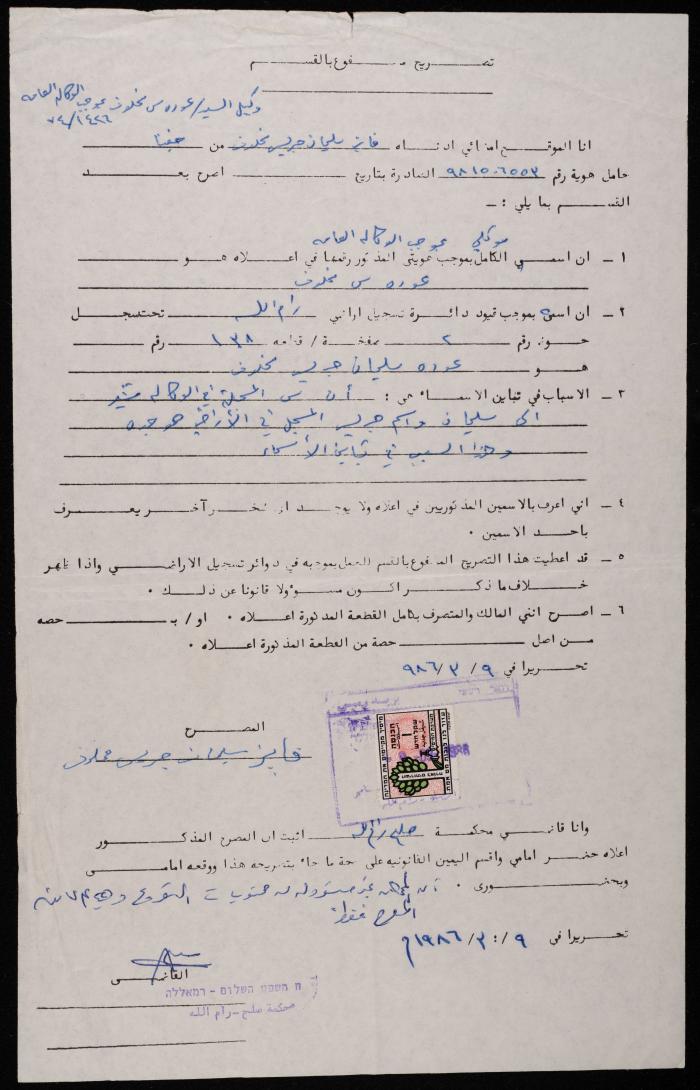 تصريح مشفوع بالقسم
وكيل السيد/ عوده س مخلوف بموجب الوكالة العامه
٧٤/١٤٢٦
انا الموقع امضائي ادناه فايز سليمان جريس مخلوف من جفنا
حامل هوية رقم ٩٨١٥٠٦٥٥٣ الصادرة بتاريخ اصرح بعد
القسم بما يلي : ـ
موكلي بموجب الوكاله العامه
١ ـ ان اسمي الكامل بموجب هويتي المذكور رقمها في اعلاه هو
عوده س مخلوف
٢ ـ ان اسمه بموجب قيود دائرة تسجيل اراضي رام الله تحت سجل
حوض رقم ٢ صفحة / قطعه ١٣٨ رقم
هو عوده سليمان جريس مخلوف
٣ ـ الاسباب في تباين الاسماء هي : أن س المسجلة في الوكاله تشير
الى سليمان واسم جريس المسجل في الأراضي هو جده
وهذا السبب في تباين الأسماء
٤ ـ اني اعرف بالاسمين المذكوريين في اعلاه ولا يوجد اي شخص آخر يعرف
باحد الاسمين ٠
٥ ـ قد اعطيت هذا التصريح المشفوع بالقسم للعمل بموجبه في دوائر تسجيل الاراضي واذا ظهر
خلاف ما ذكر اكون مسؤولا قانونا عن ذلك ٠
٦ ـ اصرح انني المالك والمتصرف بكامل القطعة المذكورة اعلاه ٠ او / بـ حصه
من اصل حصة من القطعة المذكورة اعلاه ٠
تحريرا في ٩ / ٣ / ٩٨٦
המصرح
فايز سليمان جريس مخلوف
הכנסה
שקל חדש
1
وانا قاضي محكمة صلح رام الله اثبت ان المصرح المذكور
اعلاه حضر امامي واقسم اليمين القانونيه على صحة ما جاء بتصريحه هذا ووقعه امامي
وبحضوري ٠ ان المحكمه غير مسؤوله عن محتويات التوقيع
المصرح فقط
تحريرا في ٩ / ٣ / ١٩٨٦ م
القاضي
בית משפט השלום - רמאללה
محكمة صلح - رام الله